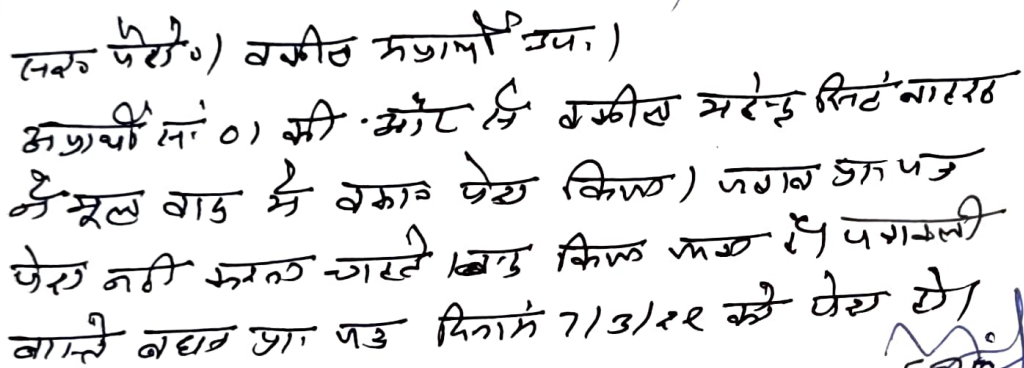 पेश०) वकील अप्रार्थी उप.)
अप्रार्थी सं 01 की ओर से वकील महेन्द्र सिंह
ने मूल वाद में वकालत पेश किया) जवाब प्रा. पत्र
पेश नहीं करना चाहते। बन्द किया जाता है। पत्रावली
वास्ते बहस प्रा. पत्र दिनांक 7/3/22 को पेश हो।